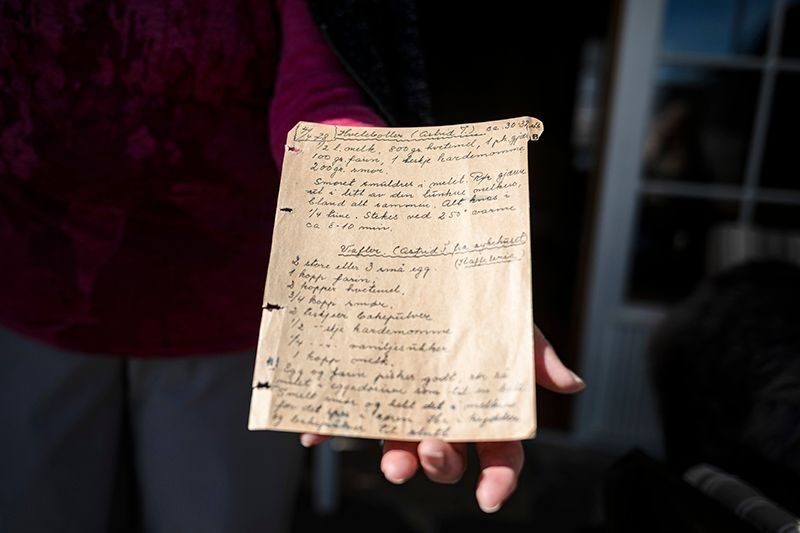 Hveteboller (Astrid T.) ca. 30-32 stk
1/2 l. melk, 800 gr hvetemel, 1 pk. gjær
100 gr. farin, 1 teskje kardemomme
200 gr. smør.
Smøret smuldres i melet. Rør gjæren
ut i litt av den lunkne melken,
bland alt sammen. Alt knas i
1/4 time. Stekes ved 250° varme
ca 8-10 min.
Vafler (Astrid) fra sykehuset
(Kafeteria)
2 store eller 3 små egg.
1 kopp farin.
2 kopper hvetemel.
3/4 kopp smør.
2 teskjeer bakepulver
1/2 -"- skje kardemomme
1/4 -"- -"- vaniljesukker
1 kopp melk.
Egg og farin pisker godt, rør så
melet i eggedosisen som til en
Smelt smør og hell det i melken
før det røres i
og bakepulver til slutt.